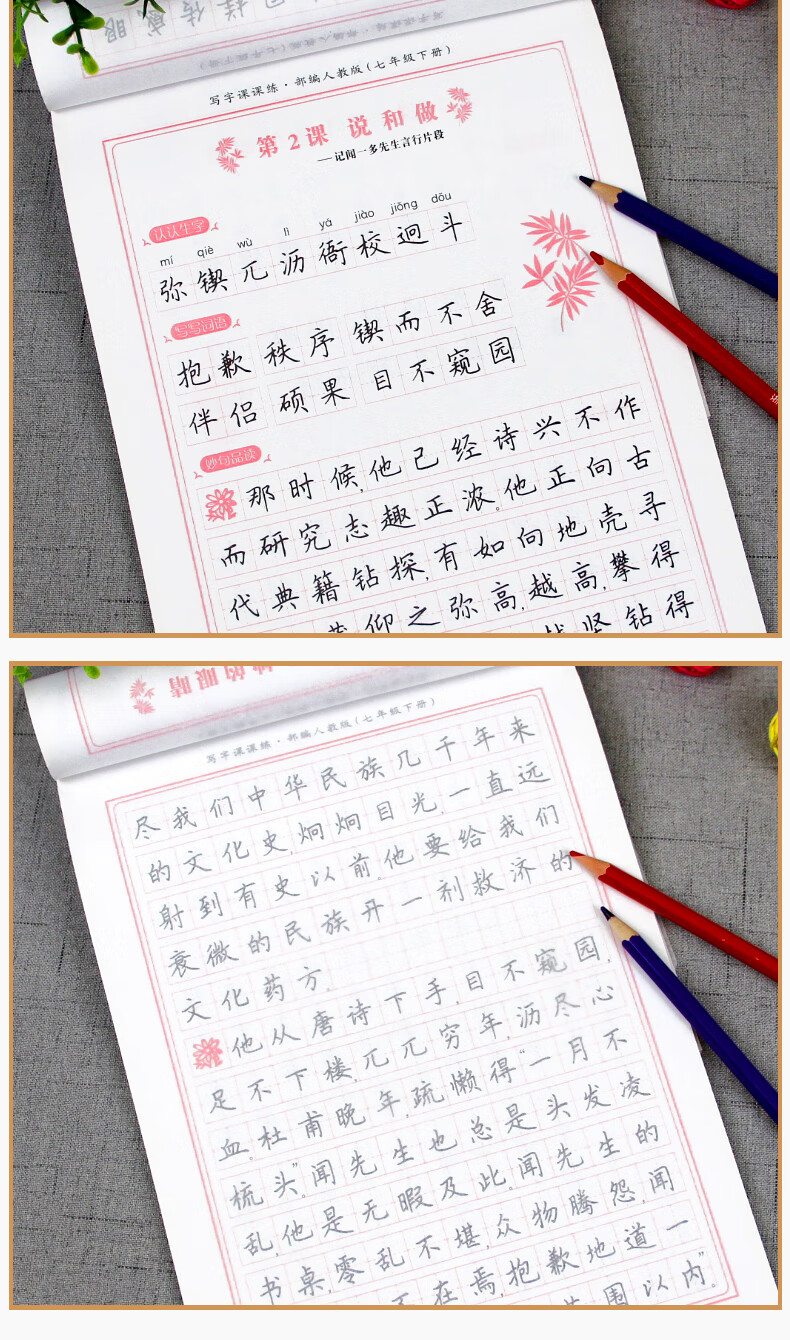 写字课课练·部编人教版(七年级下册)
第2课 说和做
——记闻一多先生言行片段
认认生字
mí qiè wù lì yá jiào jiǒng dǒu
弥锲兀沥衙校迥斗
写写词语
抱歉 秩序 锲而不舍
伴侣 硕果 目不窥园
妙句品读
那时候,他已经诗兴不作
而研究志趣正浓。他正向古
代典籍钻探,有如向地壳寻
仰之弥高,越高,攀得
坚钻得
写字课课练·部编人教版(七年级下册)
尽我们中华民族几千年来
的文化史,炯炯目光,一直远
射到有史以前。他要给我们
衰微的民族开一剂救济的
文化药方。
他从唐诗下手,目不窥园,
足不下楼,兀兀穷年,沥尽心
血。杜甫晚年,疏懒得“一月不
梳头”。闻先生也总是头发凌
乱,他是无暇及此。闻先生的
书桌,零乱不堪,众物腾怨,闻
不在焉,抱歉地道一
范围以内”。